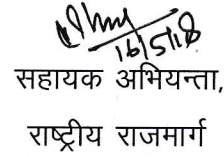 16/5/18
सहायक अभियन्ता,
राष्ट्रीय राजमार्ग